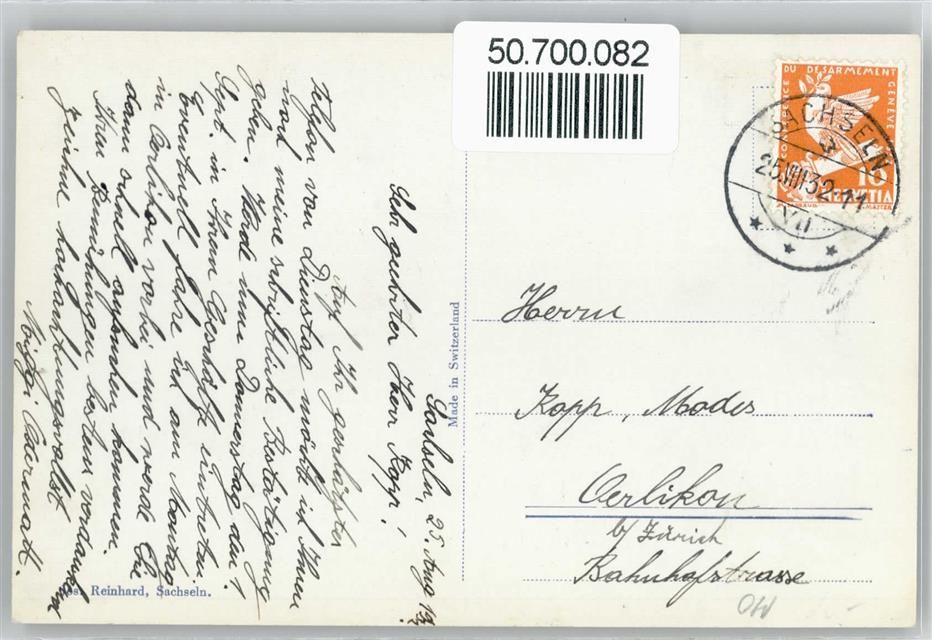 50.700.082
CONFERENCE DU DESARMEMENT GENEVE
10
HELVETIA
SACHSELN
25.VIII.32-11
Sachseln, 25. Aug 1932
Sehr geehrter Herr Kopp!
Auf Ihr gemachtes
Telefon von Dienstag möchte ich Ihnen
noch meine schriftliche Bestätigung
geben. Werde nun Donnerstag den 1
Sept. in Ihrem Geschäft eintreten.
Eventuell fahre ich am Montag
in Oerlikon vorbei und werde Sie
dann schnell aufsuchen kommen.
Ihre Bemühungen bestens verdankend
zeichne hochachtungsvollst
Made in Switzerland
Reinhard, Sachseln.
Herrn
Kopp, Modes
Oerlikon
b/ Zürich
Bahnhofstrasse
OW